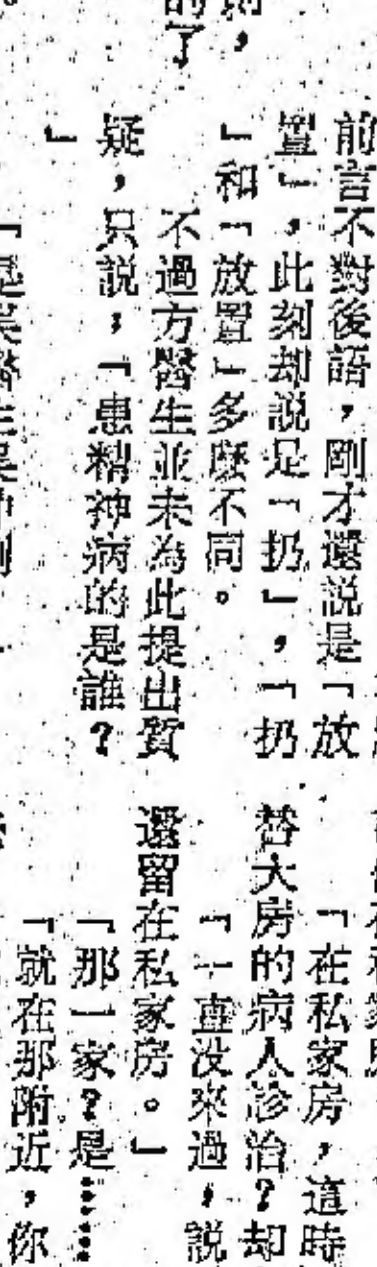 的了，
前言不對後語，剛才還說是「放
置」，此刻却說是「扔」，「扔
」和「放置」多麼不同。
不過方醫生並未為此提出質
疑，只說，「患精神病的是誰？
」
「在私家房，這時
替大房的病人診治？却
「一直没來過，說
還留在私家房。」
「那一家？是……
「就在那附近，你